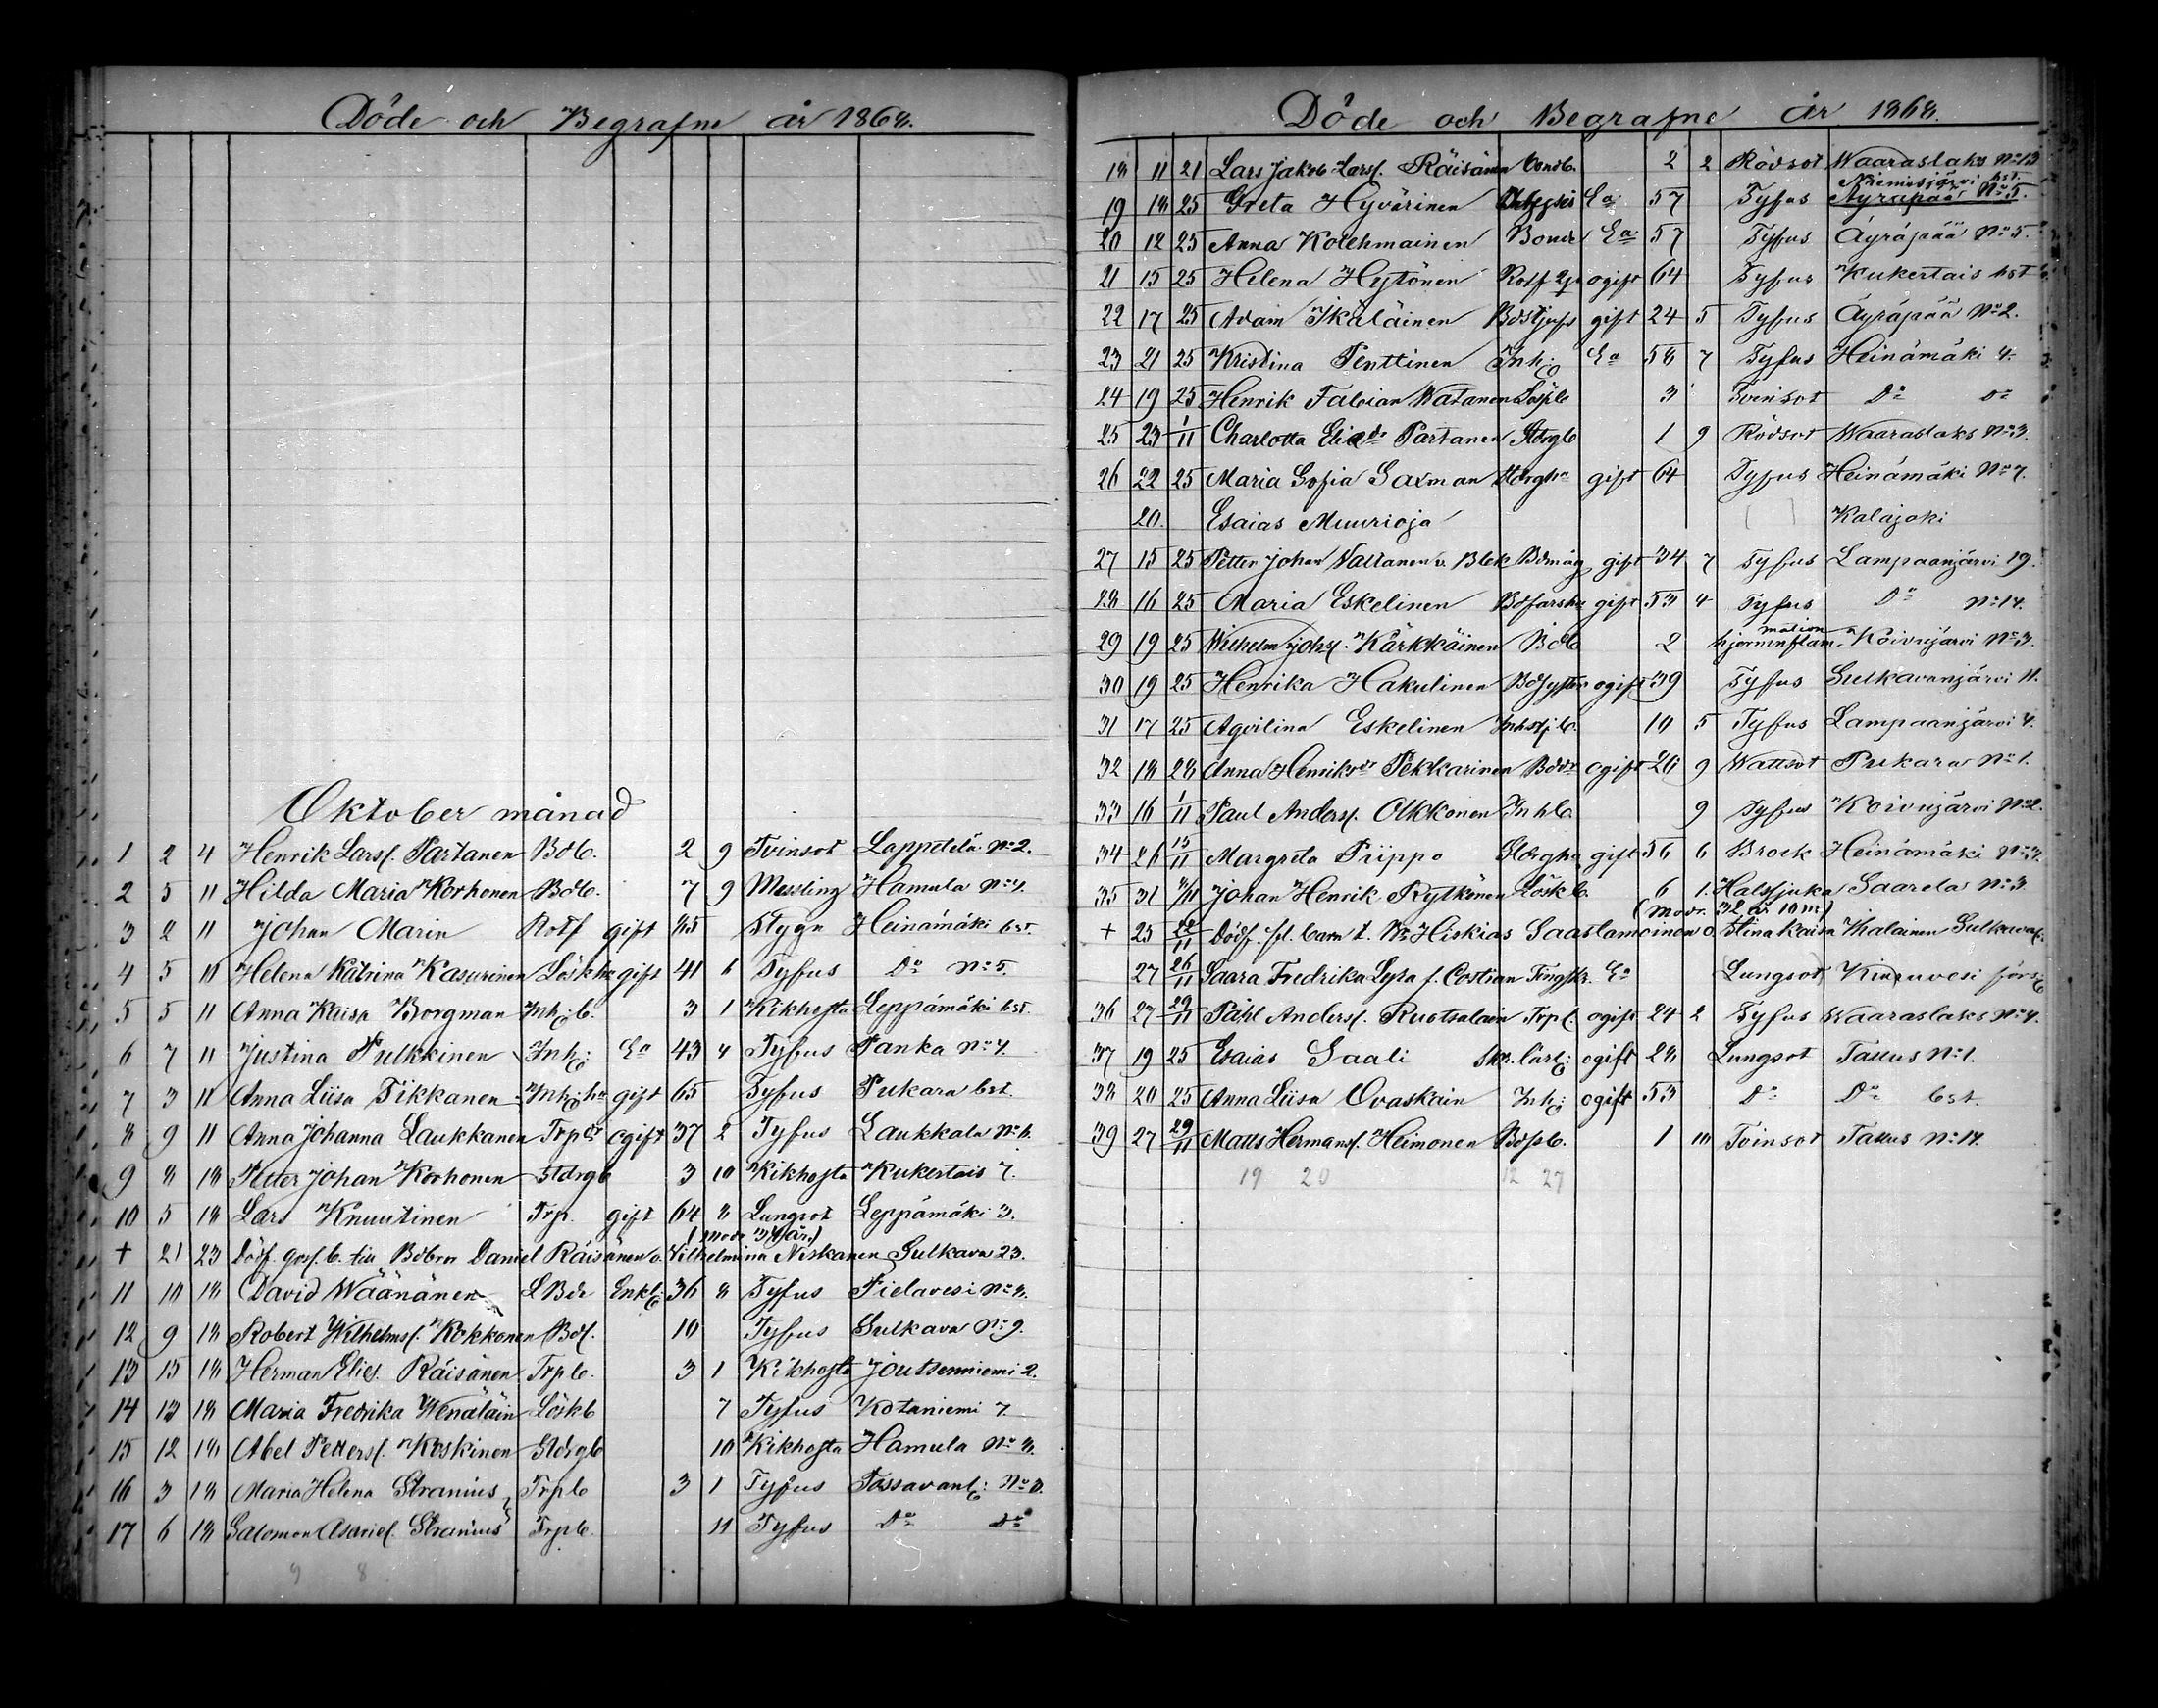 Döde och Begrafne år 1868.
Oktober månad
1 2 4 Henrik Larsf. Partanen Bdb. 2 9 Tvinsot Lappetelä No 2.
2 5 11 Hilda Maria Korhonen Bdb. 7 9 Messling Hamula No 4.
3 2 11 Johan Marin Rotf gift 85 Stygn Heinämäki bst.
4 5 11 Helena Katrina Kasurinen Löskhu gift 41 6 Tyfus Do No 5.
5 5 11 Anna Kaisa Borgman Inh:b. 3 1 Kikhosta Leppämäki bst.
6 7 11 Justina Pulkkinen Inh: Ea 43 4 Tyfus Panka No 4.
7 3 11 Anna Liisa Tikkanen Inh:hu gift 65 Tyfus Pukara bst.
8 9 11 Anna Johanna Laukkanen Trpdr ogift 37 2 Tyfus Laukkala No 6.
9 8 18 Petter Johan Korhonen Stdrgb 3 10 Kikhosta Kukertais 7.
10 5 18 Lars Knuutinen Trp. gift 64 8 Lungsot Leppämäki 3.
(modr 34 år)
+ 21 23 Dödf. gosf. b. till Bdbror Daniel Räisänen o. Vilhelmina Niskanen Sulkava 23.
11 10 18 David Wäänänen LBde Enkl: 36 8 Tyfus Pielavesi No 8.
12 9 18 Robert Wilhelmsf. Kokkonen Bdf. 10 Tyfus Sulkava No 9.
13 15 18 Herman Elief. Räisänen Trpb. 3 1 Kikhosta Joutsenniemi 2.
14 13 18 Maria Fredrika Wenäläin Löskb 7 Tyfus Kotaniemi 7.
15 12 18 Abel Pettersf. Koskinen Stdrgb 10 Kikhosta Hamula No 8.
16 3 18 Maria Helena Stranius Trpb 3 1 Tyfus Tossavanl:
17 6 18 Salomon Asarief. Stranius Trpb. 11 Tyfus Do Do
9 8
Döde och Begrafne år 1868.
18 11 21 Lars Jakob Larsf. Räisänen Bondb. 2 2 Rödsot Waaraslaks No 13
Niemisjärvi bst.
19 18 25 Greta Hyvärinen Ea 57 Tyfus Äyräpää No 5.
20 12 25 Anna Kolehmainen Bonde Ea 57 Tyfus Äyräpää No 5.
21 15 25 Helena Hytönen Rotf ogift 64 Tyfus Kukertais bst
22 17 25 Adam Ikäläinen gift 24 5 Tyfus Äyräpää No 2.
23 21 25 Kristina Penttinen Inh: Ea 58 7 Tyfus Heinämäki 4.
24 19 25 Henrik Fabian Watanen Löspb 3 Tvinsot Do Do
25 23 1/11 Charlotta Eliedr Partanen Stdrgb 1 9 Rödsot Waaraslaks No 3.
26 22 25 Maria Sofia Saxman Stdrghu gift 64 Tyfus Heinämäki No 7.
20. Esaias Muurioja Kalajoki
27 15 25 Petter Johan Valtanen v. Blek Bdmåg gift 34 7 Tyfus Lampaanjärvi 19.
28 16 25 Maria Eskelinen gift 53 4 Tyfus Do No 14.
29 19 25 Wilhelm Johsf. Kärkkäinen Bdb 2 hjerninflammation Koivujärvi No 3.
30 19 25 Henrika Hakulinen Bdsyster ogift 39 Tyfus Sulkavanjärvi 11.
31 17 25 Agvilina Eskelinen 10 5 Tyfus Lampaanjärvi 4.
32 18 28 Anna Henriksdr Pekkarinen Bddr ogift 26 9 Wattsot Pukara No 1.
33 16 1/11 Paul Andersf. Olkkonen Inhb. 9 Tyfus Koivujärvi No 2.
34 26 15/11 Margreta Piippo Stdrghu gift 56 6 Brock Heinämäki
35 31 Johan Henrik Rytkönen Löskb. 6 1. Halssjuka Saarela No 3.
(modr. 32 år 10 m)
+ 25 22/11 Dödf. barn t. Hiskias Saastamoinen o. Stina Kaisa Ikalainen Sulkava
27 26/11 Saara Fredrika Lyra f. Costian Ea Lungsot Kiuruvesi förs:
36 27 29/11 Påhl Andersf. Ruotsalain Trpf. ogift 24 2 Tyfus Waaraslaks No 4.
37 19 25 Esaias Saali Skr. lärl: ogift 28 Lungsot Tallus No 1.
38 20 25 Anna Liisa Ovaskain Inh: ogift 53 Do Do bst.
39 27 29/11 Matts Hermansf. Heimonen Bdpb. 1 10 Tvinsot Tallus No 14.
19 20 12 27